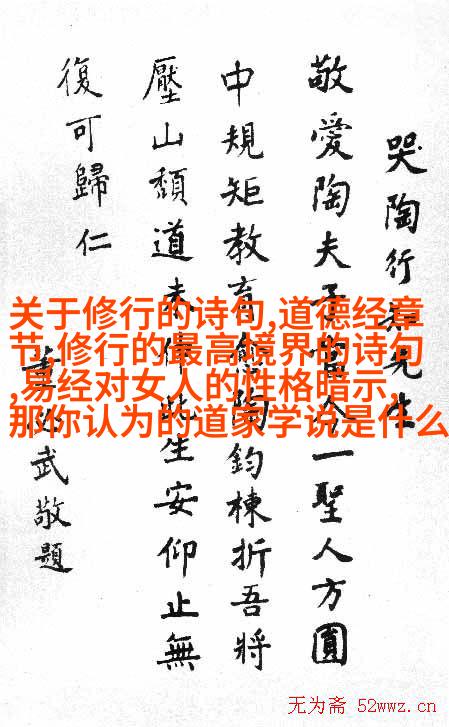 哭陶行知先生
敬愛陶夫子當今一聖人方圓
中規矩教育陶鈞棟折吾將
壓山頹道未伸此生安仰止無
復可歸仁
董必武敬題
关于修行的诗句,道德经章
节,修行的最高境界的诗句
,易经对女人的性格暗示,
那你认为的道家学说是什么
无为斋 52wwz.cn